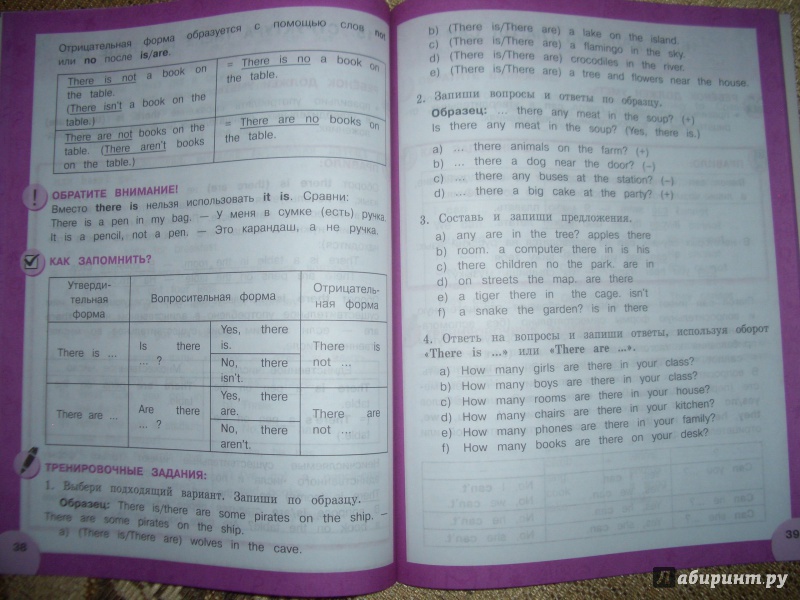 Отрицательная форма образуется с помощью слов not
или no после is/are.
There is not a book on
the table.
(There isn't a book on the
table.)
= There is no a book on
the table.
There are not books on the
table. (There aren't books
on the table.)
= There are no books on
the table.
! ОБРАТИТЕ ВНИМАНИЕ!
Вместо there is нельзя использовать it is. Сравни:
There is a pen in my bag. — У меня в сумке (есть) ручка.
It is a pencil, not a pen. — Это карандаш, а не ручка.
КАК ЗАПОМНИТЬ?
Утверди-
тельная
форма
Вопросительная форма
Отрицатель-
ная форма
There is ...
Is there
... ?
Yes, there
is.
No, there
isn't.
There is
not ...
There are ...
Are there
... ?
Yes, there
are.
No, there
aren't.
There are
not ...
ТРЕНИРОВОЧНЫЕ ЗАДАНИЯ:
1. Выбери подходящий вариант. Запиши по образцу.
Образец: There is/there are some pirates on the ship. —
There are some pirates on the ship.
a) (There is/There are) wolves in the cave.
38
b) (There is/There are) a lake on the island.
c) (There is/There are) a flamingo in the sky.
d) (There is/There are) crocodiles in the river.
e) (There is/There are) a tree and flowers near the house.
2. Запиши вопросы и ответы по образцу.
Образец: ... there any meat in the soup? (+)
Is there any meat in the soup? (Yes, there is.)
a) ... there animals on the farm? (+)
b) ... there a dog near the door? (–)
c) ... there any buses at the station? (–)
d) ... there a big cake at the party? (+)
3. Составь и запиши предложения.
a) any are in the tree? apples there
b) room. a computer there in is his
c) there children no the park. are in
d) on streets the map. are there
e) a tiger there in the cage. isn't
f) a snake the garden? is in there
4. Ответь на вопросы и запиши ответы, используя оборот
«There is ...» или «There are ...».
a) How many girls are there in your class?
b) How many boys are there in your class?
c) How many rooms are there in your house?
d) How many chairs are there in your kitchen?
e) How many phones are there in your family?
f) How many books are there on your desk?
39
Лабиринт.ру